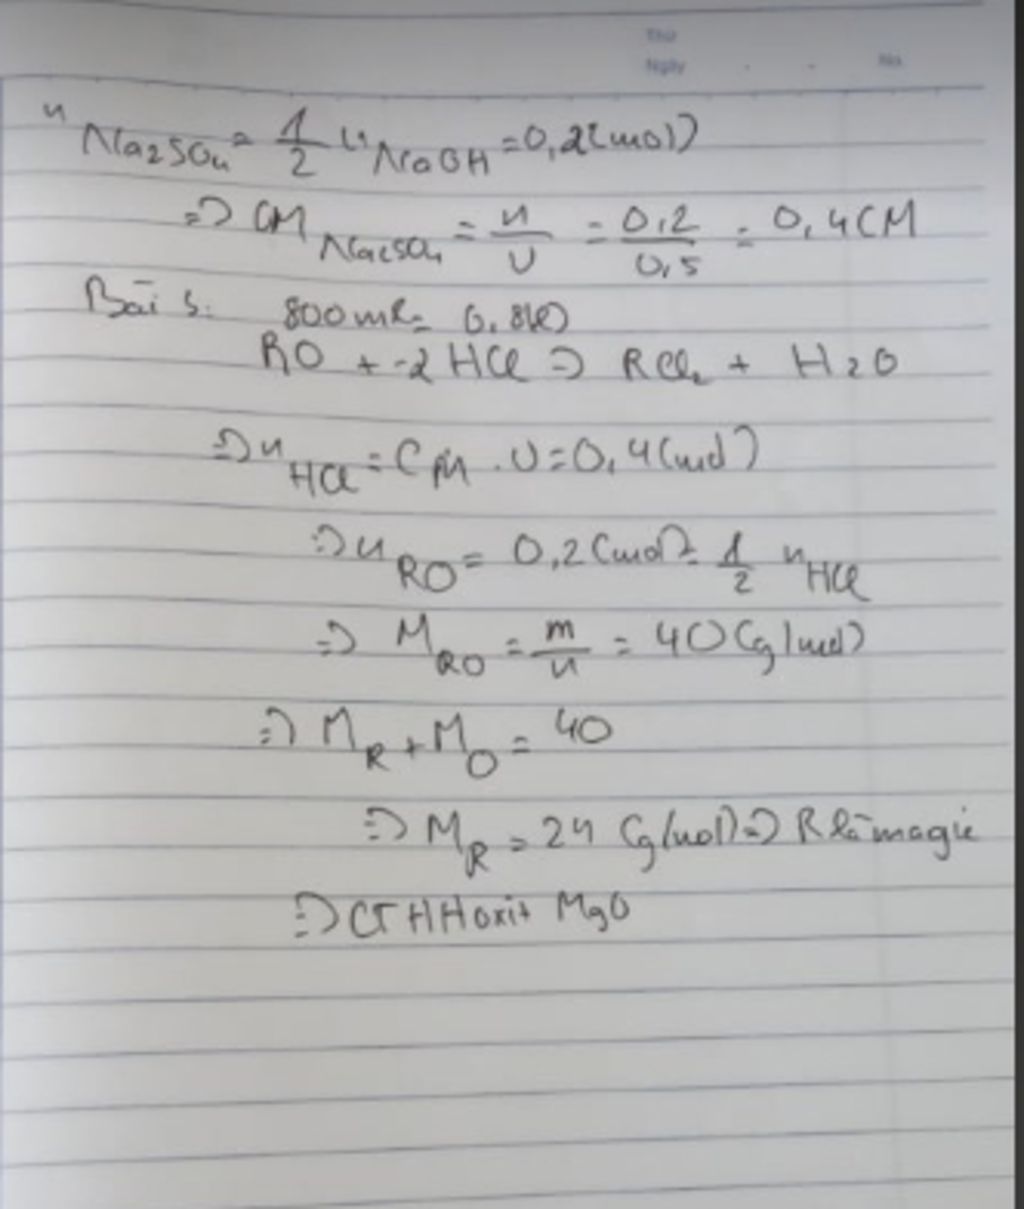 Thứ
Ngày . . No.
n Na2SO4 = 1/2 n NaOH = 0,2 (mol)
=> CM Na2SO4 = n/V = 0,2/0,5 = 0,4 CM
Bài 5: 800 ml = 0,8 (l)
RO + 2 HCl => RCl2 + H2O
=> n HCl = CM . V = 0,4 (mol)
=> n RO = 0,2 (mol) = 1/2 n HCl
=> M RO = m/n = 40 (g/mol)
=> M R + M O = 40
=> M R = 24 (g/mol) => R là magie
=> CTHH oxit MgO